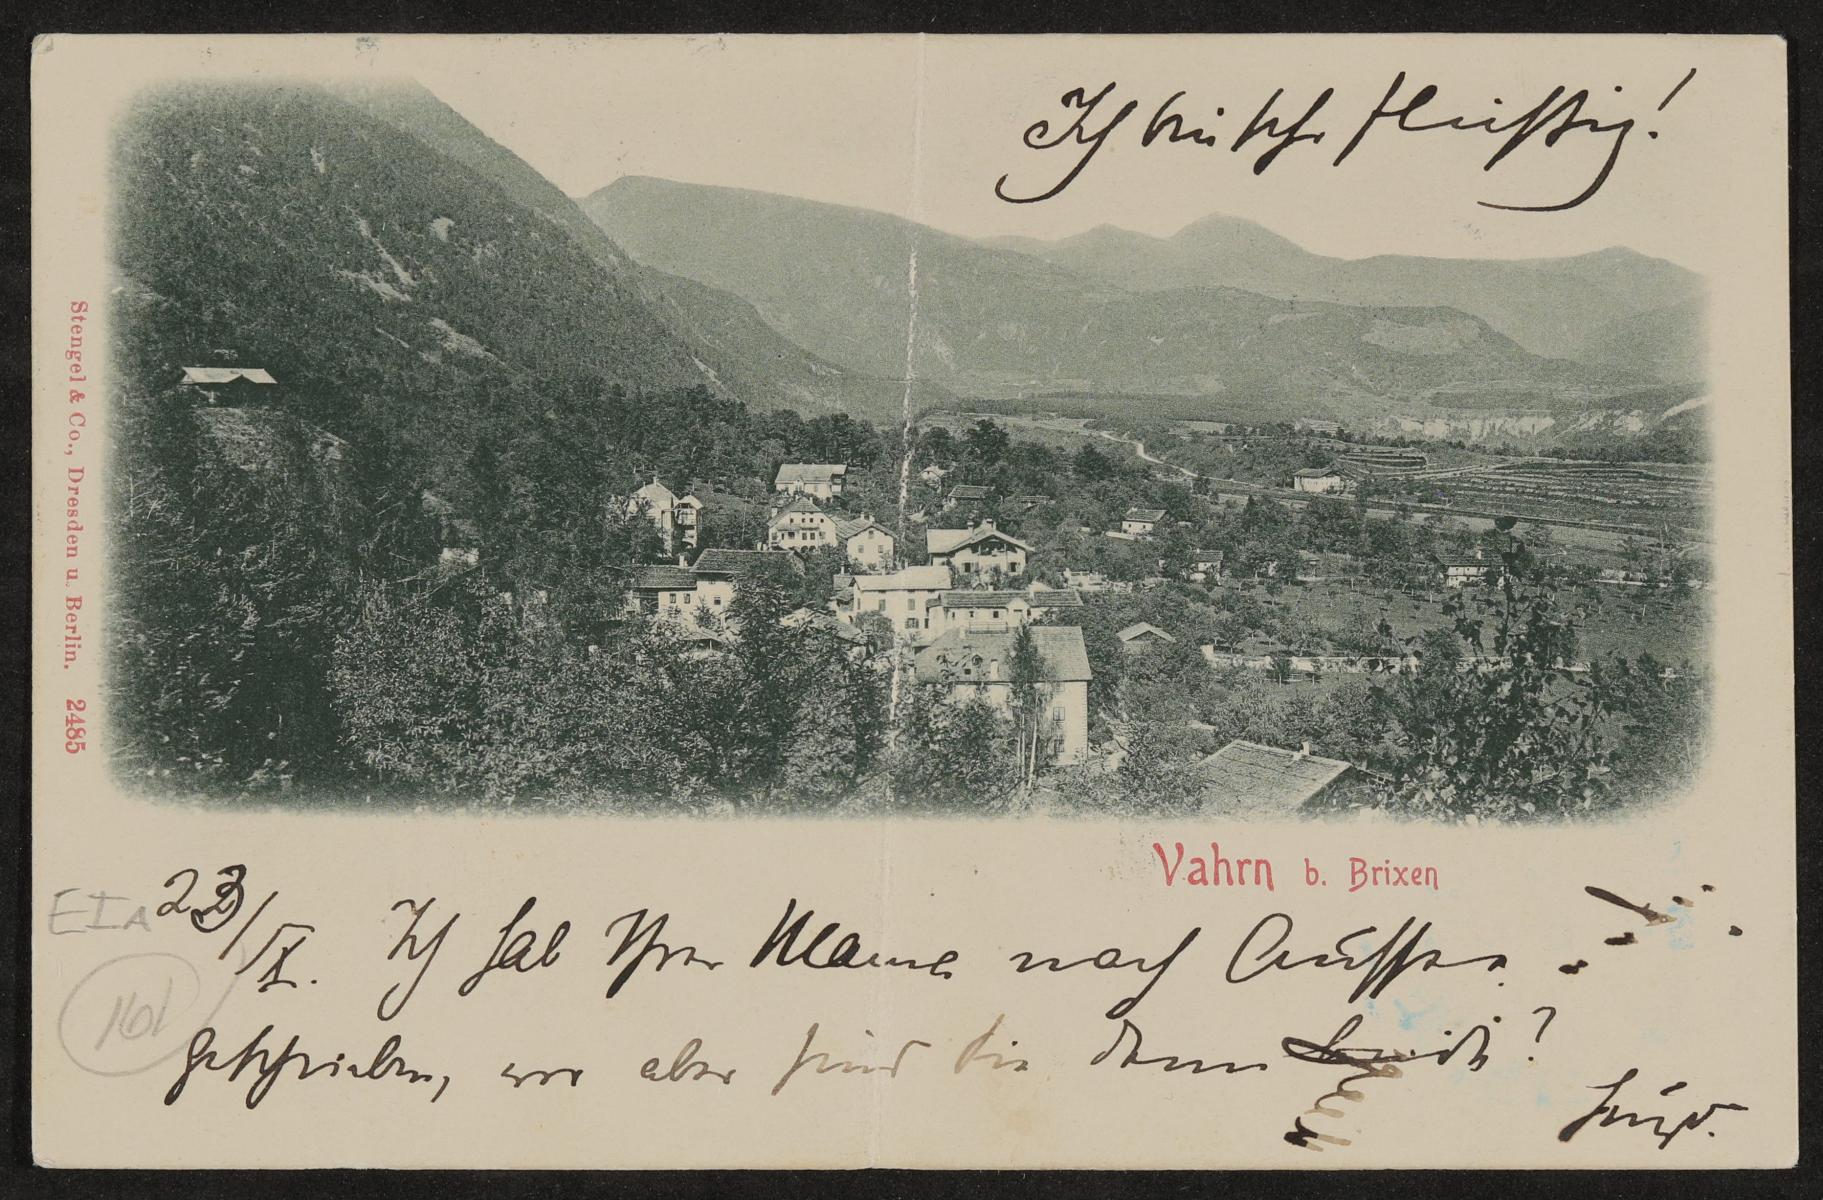 Ich bin sehr fleissig!
Stengel & Co., Dresden u. Berlin. 2485
Vahrn b. Brixen
EIA
161
23/IX. Ich hab Ihrer Mama nach Aussee
geschrieben, wo aber sind Sie denn ?